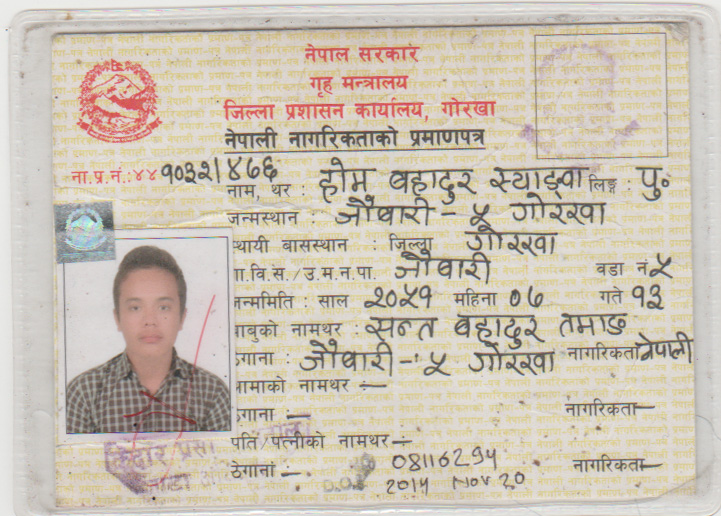 नेपाल सरकार
गृह मन्त्रालय
जिल्ला प्रशासन कार्यालय, गोरखा
नेपाली नागरिकताको प्रमाणपत्र
ना.प्र.नं.: ४४ १०३२/४७६
नाम, थर : होम बहादुर स्याङ्वा लिङ्ग : पु०
जन्मस्थान : जौबारी - ५ गोरखा
थायी बासस्थान : जिल्ला गोरखा
गा.वि.स./उ.म.न.पा. जौबारी वडा नं ५
जन्ममिति : साल २०५१ महिना ०७ गते १३
बाबुको नामथर : सन्त बहादुर तमाङ
ठेगाना : जौबारी - ५ गोरखा नागरिकता नेपाली
आमाको नामथर : —
ठेगाना : — नागरिकता —
पति/पत्नीको नामथर : —
ठेगाना : — 08116294 नागरिकता —
2014 Nov 20